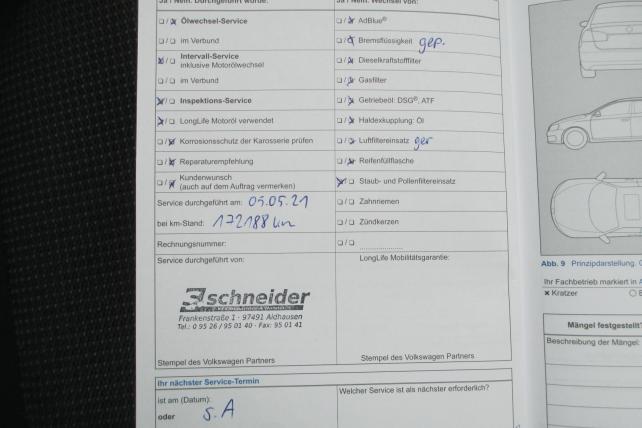 Ja / Nein: Durchgeführt wurde:
Ölwechsel-Service
im Verbund
Intervall-Service
inklusive Motorölwechsel
im Verbund
Inspektions-Service
LongLife Motoröl verwendet
Korrosionsschutz der Karosserie prüfen
Reparaturempfehlung
Kundenwunsch
(auch auf dem Auftrag vermerken)
Service durchgeführt am: 05.05.21
bei km-Stand: 172188 km
Rechnungsnummer:
Service durchgeführt von:
schneider
Frankenstraße 1 · 97491 Aidhausen
Tel.: 0 95 26 / 95 01 40 · Fax: 95 01 41
Stempel des Volkswagen Partners
Ja / Nein: Wechsel von:
AdBlue®
Bremsflüssigkeit gep.
Dieselkraftstofffilter
Gasfilter
Getriebeöl: DSG®, ATF
Haldexkupplung: Öl
Luftfiltereinsatz ger
Reifenfüllflasche
Staub- und Pollenfiltereinsatz
Zahnriemen
Zündkerzen
LongLife Mobilitätsgarantie:
Stempel des Volkswagen Partners
Ihr nächster Service-Termin
ist am (Datum):
oder s.A
Welcher Service ist als nächster erforderlich?
Abb. 9 Prinzipdarstellung.
Ihr Fachbetrieb markiert in
× Kratzer
Mängel festgestellt?
Beschreibung der Mängel: